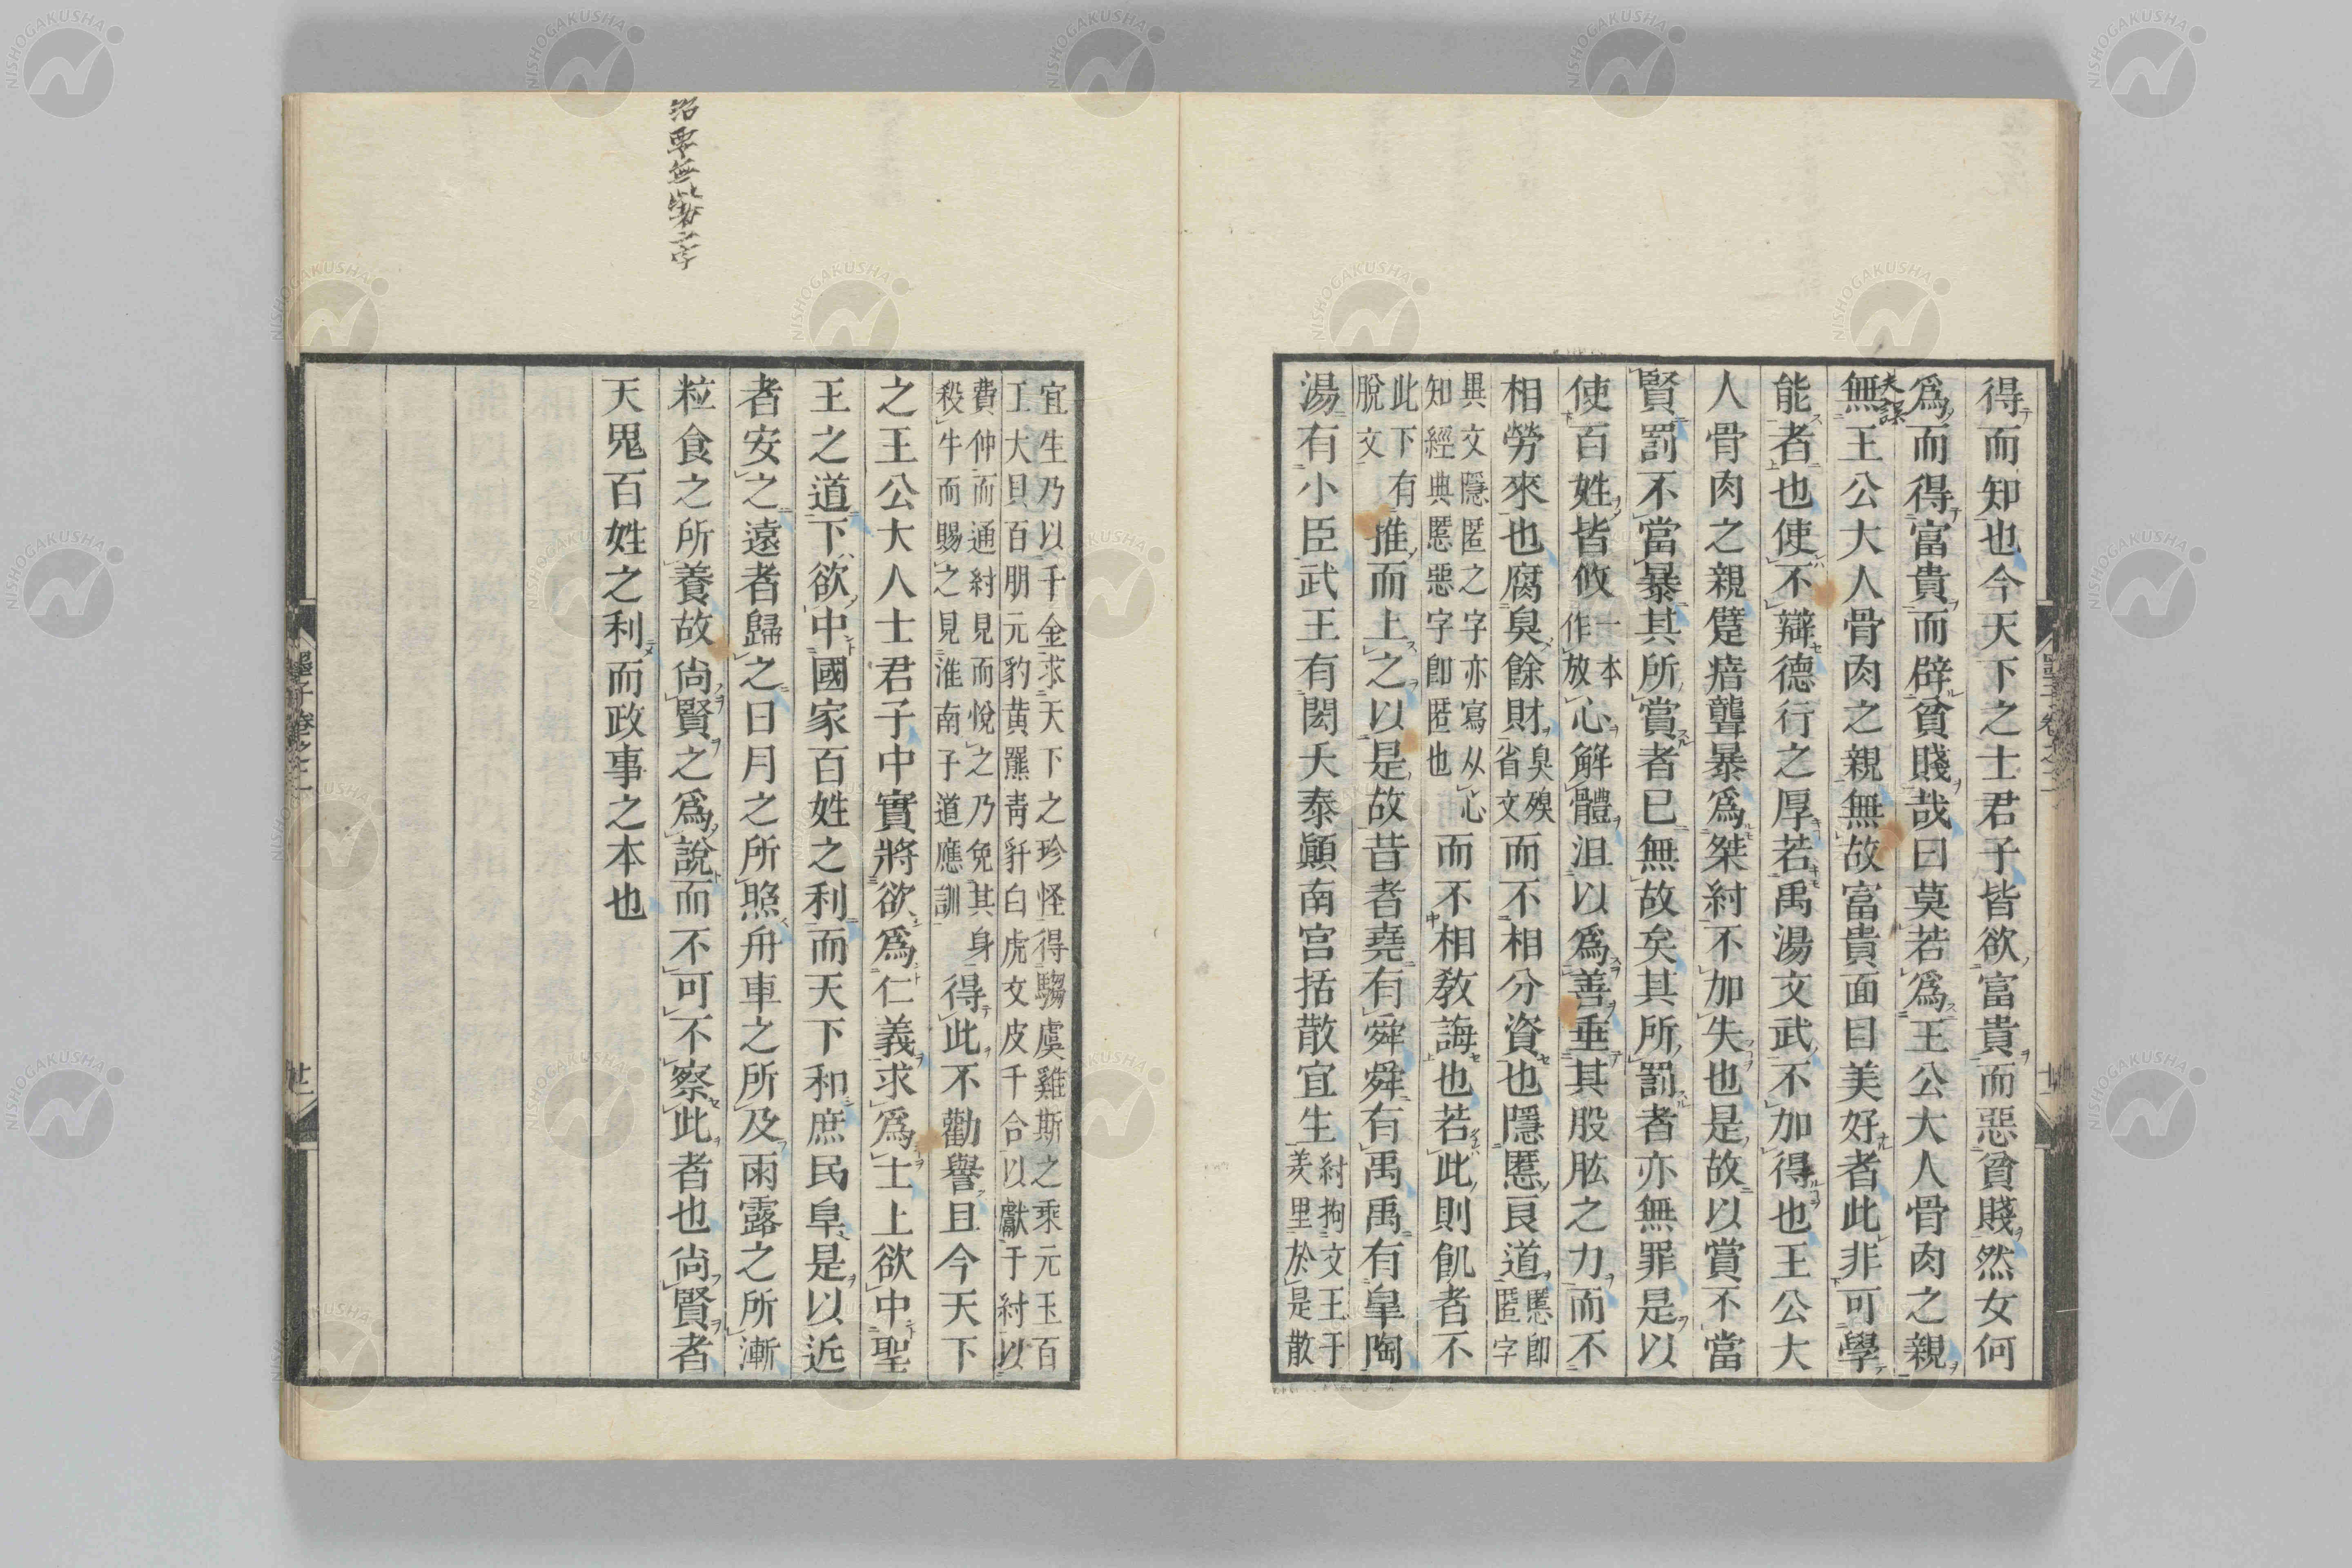 得而知也今天下之士君子皆欲富貴而惡貧賤然女何
爲而得富貴而辟貧賤哉曰莫若爲王公大人骨肉之親
無王公大人骨肉之親無故富貴面目美好者此非可學
能者也使不辯德行之厚若禹湯文武不加得也王公大
人骨肉之親躄瘖聾暴爲桀紂不加失也是故以賞不當
賢罰不當暴其所賞者已無故矣其所罰者亦無罪是以
使百姓皆攸一本作放心解體沮以爲善垂其股肱之力而不
相勞來也腐臭餘財臭殠省文而不相分資也隱慝良道慝卽匿字
異文隱匿之字亦寫从心知經典慝惡字卽匿也而不相敎誨也若此則飢者不
此下有脫文推而上之以是故昔者堯有舜舜有禹禹有皐陶
湯有小臣武王有閎夭泰顚南宮括散宜生紂拘文王于羑里於是散
宜生乃以千金求天下之珍怪得騶虞雞斯之乘元玉百
工大貝百朋元豹黃羆靑豻白虎文皮千合以獻于紂以
費仲而通紂見而悅之乃免其身殺牛而賜之見淮南子道應訓得此不勸譽且今天下
之王公大人士君子中實將欲爲仁義求爲士上欲中聖
王之道下欲中國家百姓之利而天下和庶民阜是以近
者安之遠者歸之日月之所照舟車之所及雨露之所漸
粒食之所養故尙賢之爲說而不可不察此者也尙賢者
天鬼百姓之利而政事之本也
墨子卷之二
墨子卷之二
NISHOGAKUSHA